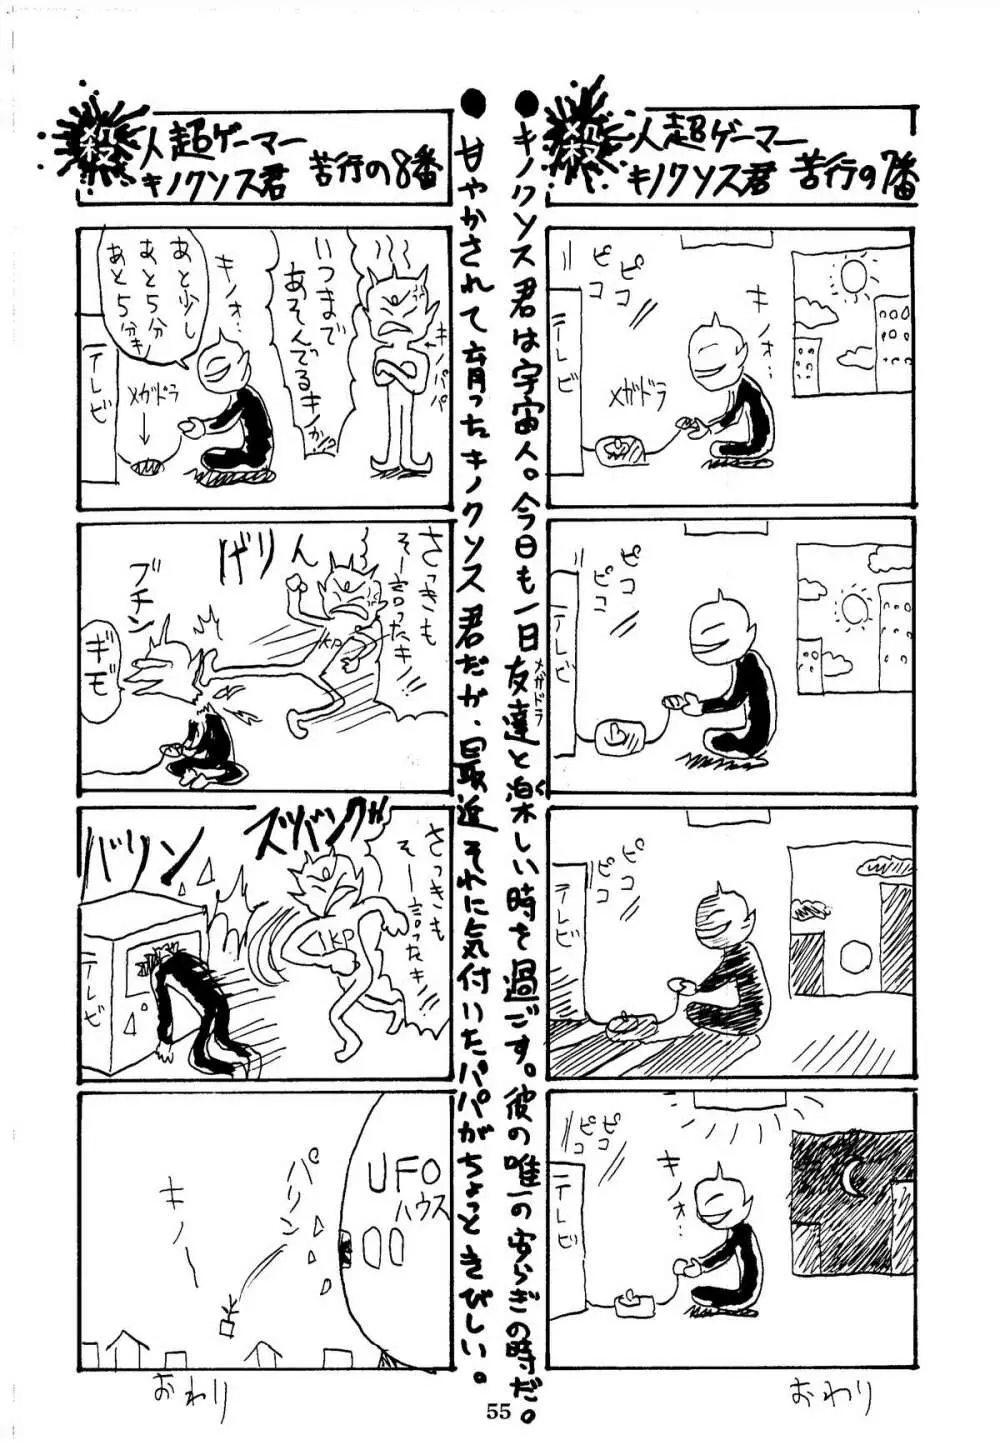 殺人超ゲーマー
キノクソス君 苦行の7番
ピコ
ピコ
キノォ…
メガドラ
テレビ
ピコ
ピコ
テレビ
ピコ
ピコ
テレビ
ピコ
ピコ
キノォ…
テレビ
おわり
●キノクソス君は宇宙人。今日も一日友達と楽しい時を過ごす。彼の唯一の安らぎの時だ。
メガドラ
く
●甘やかされて育ったキノクソス君だが、最近それに気付いたパパがちょっときびしい。
殺人超ゲーマー
キノクソス君 苦行の8番
いつまで
あそんでるキノか!?
キノパパ
キノォ…
あと少し
あと5分
あと5分キノ
メガドラ
テレビ
さっきも
そー言ったキノ!!
げりん
KP
ブチン
ギギ
ズババング
さっきも
そー言ったキノ!!
1KP
バリン
テレビ
UFO
ハウス
パリン
キノー
おわり
55